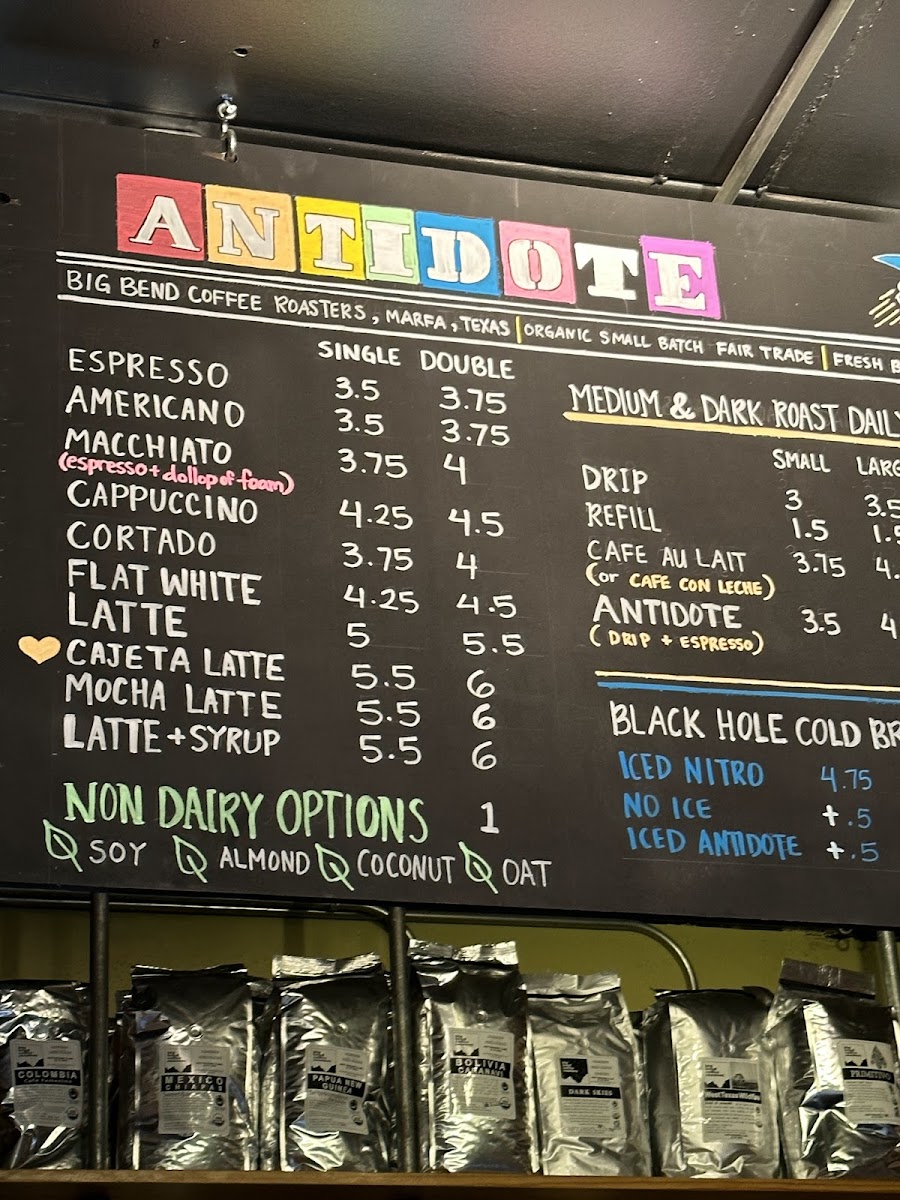 ANTIDOTE
BIG BEND COFFEE ROASTERS, MARFA, TEXAS | ORGANIC SMALL BATCH FAIR TRADE | FRESH
SINGLE DOUBLE
ESPRESSO 3.5 3.75
AMERICANO 3.5 3.75
MACCHIATO 3.75 4
(espresso + dollop of foam)
CAPPUCCINO 4.25 4.5
CORTADO 3.75 4
FLAT WHITE 4.25 4.5
LATTE 5 5.5
CAJETA LATTE 5.5 6
MOCHA LATTE 5.5 6
LATTE + SYRUP 5.5 6
NON DAIRY OPTIONS 1
SOY ALMOND COCONUT OAT
MEDIUM & DARK ROAST DAILY
SMALL LARG
DRIP 3 3.5
REFILL 1.5 1.5
CAFE AU LAIT 3.75 4.
(or CAFE CON LECHE)
ANTIDOTE 3.5 4
(DRIP + ESPRESSO)
BLACK HOLE COLD BR
ICED NITRO 4.75
NO ICE +.5
ICED ANTIDOTE +.5
COLOMBIA
MEXICO
CHIAPAS
PAPUA NEW
GUINEA
BOLIVIA
CARANAVI
DARK SKIES
PRIMITIVO